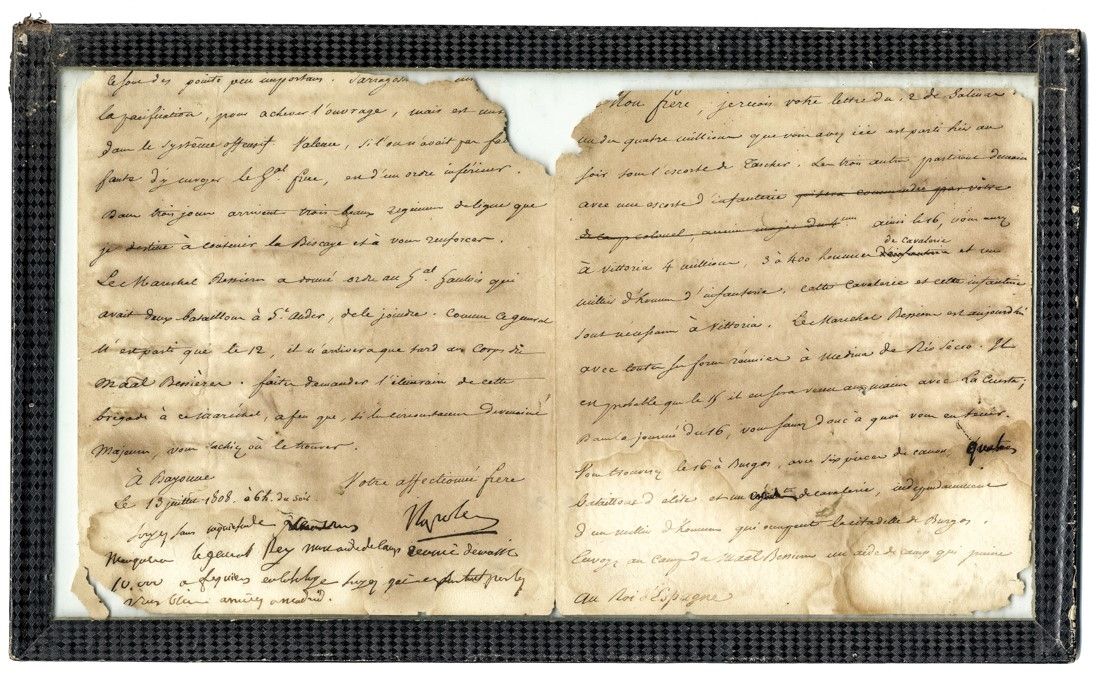 Mon frère, je reçois votre lettre du 12 de
un des quatre millions que vous avez ici est parti hier au
soir sous l'escorte de Tascher. Les trois autres partiront demain
avec une escorte d'infanterie
ainsi le 16, vous aurez
de cavalerie
à Vittoria 4 millions, 3 à 400 hommes d'infanterie et un
millier d'hommes d'infanterie. cette cavalerie et cette infanterie
sont nécessaires à Vittoria. Le Maréchal Bessieres est aujourd'hui
avec toutes ses forces réunies à Medina de Rio Seco. Il
est probable que le 15 il en sera venu aux mains avec La Cuesta;
Dans la journée du 16, vous saurez donc à quoi vous en tenir.
Vous trouverez le 16 à Burgos, avec six pieces de canon, quatre
bataillons d'elite et un de cavalerie, independamment
d'un millier d'hommes qui occupent la citadelle de Burgos.
Envoyez au camp du Maal Bessieres un aide de camp qui puisse
Au Roi d'Espagne
ce sont des points peu importans. Sarragosse
la pacification, pour achever l'ouvrage, mais est
dans le système offensif. Valence, si l'on n'avait pas fait
faute d'y envoyer le Gal Frere, est d'un ordre inférieur.
Dans trois jours arrivent trois beaux régimens de ligne que
je destine à contenir la Biscaye et à vous renforcer.
Le Maréchal Bessieres a donné ordre au Gal Gaulois qui
avait deux bataillons à St. Ander, de le joindre. Comme ce général
n'est parti que le 12, il n'arrivera que tard au Corps du
Maal Bessières. faites demander l'itinéraire de cette
brigade à ce Maréchal, afin que, si les circonstances devenaient
Majeures, vous sachiez où le trouver.
à Bayonne Votre affectionné frère
le 13 juillet 1808. à 6h. du soir.
Soyez sans inquietude
Napoléon
le general Rey mon aide de camp
10.000 a figuières
vous arriverez a madrid.